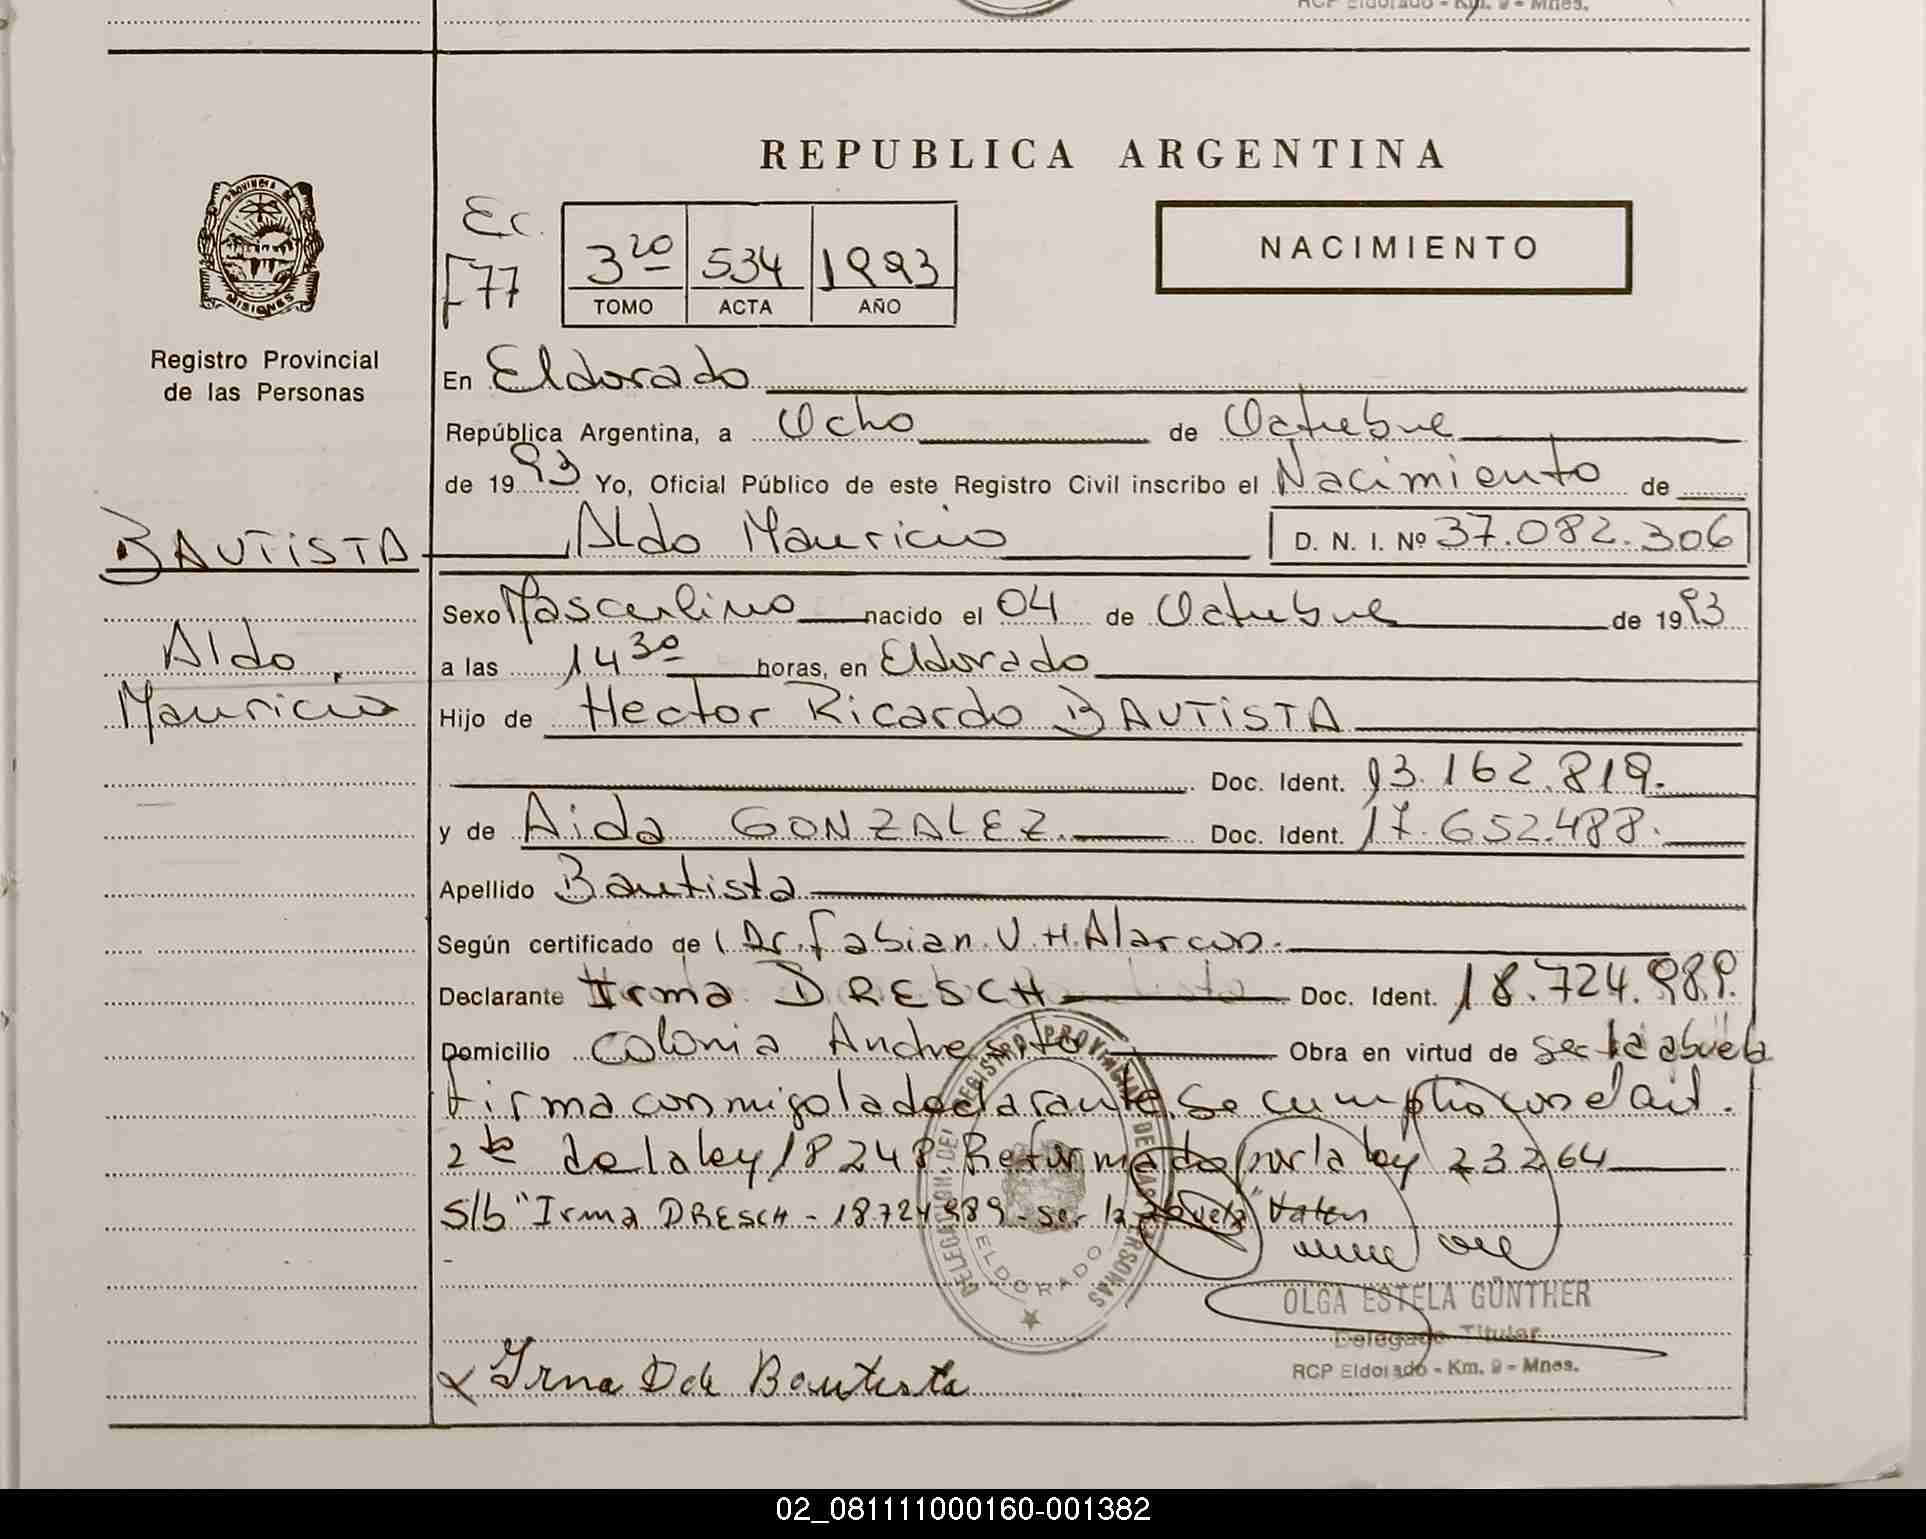 RCP Eldorado - Km. 9 - Mnes.
REPUBLICA ARGENTINA
PROVINCIA DE
MISIONES
Registro Provincial
de las Personas
Ec.
F77
3 20 534 1993
TOMO ACTA AÑO
NACIMIENTO
En Eldorado
República Argentina, a Ocho de Octubre
de 1993 Yo, Oficial Público de este Registro Civil inscribo el Nacimiento de
BAUTISTA Aldo Mauricio D. N. I. Nº 37.082.306
Sexo Masculino nacido el 04 de Octubre de 1993
Aldo
a las 14 30 horas, en Eldorado
Mauricio
Hijo de Hector Ricardo BAUTISTA
Doc. Ident. 13.162.819.
y de Aida GONZALEZ. Doc. Ident. 17.652.488.
Apellido Bautista
Según certificado de Dr. Fabian V. H. Alarcon.
Declarante Irma DRESCH Doc. Ident. 18.724.989.
Domicilio Colonia Andresito Obra en virtud de ser la abuela
Firma conmigo la declarante. Se cumplio con el art.
2 do de la ley 18248. Reformado por la ley 23264
S/b "Irma DRESCH - 18.724989 - ser la abuela" Valen
DELEGACION DEL REGISTRO PROVINCIAL DE LAS PERSONAS
ELDORADO
OLGA ESTELA GÜNTHER
Delegado Titular
RCP Eldorado - Km. 9 - Mnes.
x Irma D de Bautista
02_081111000160-001382